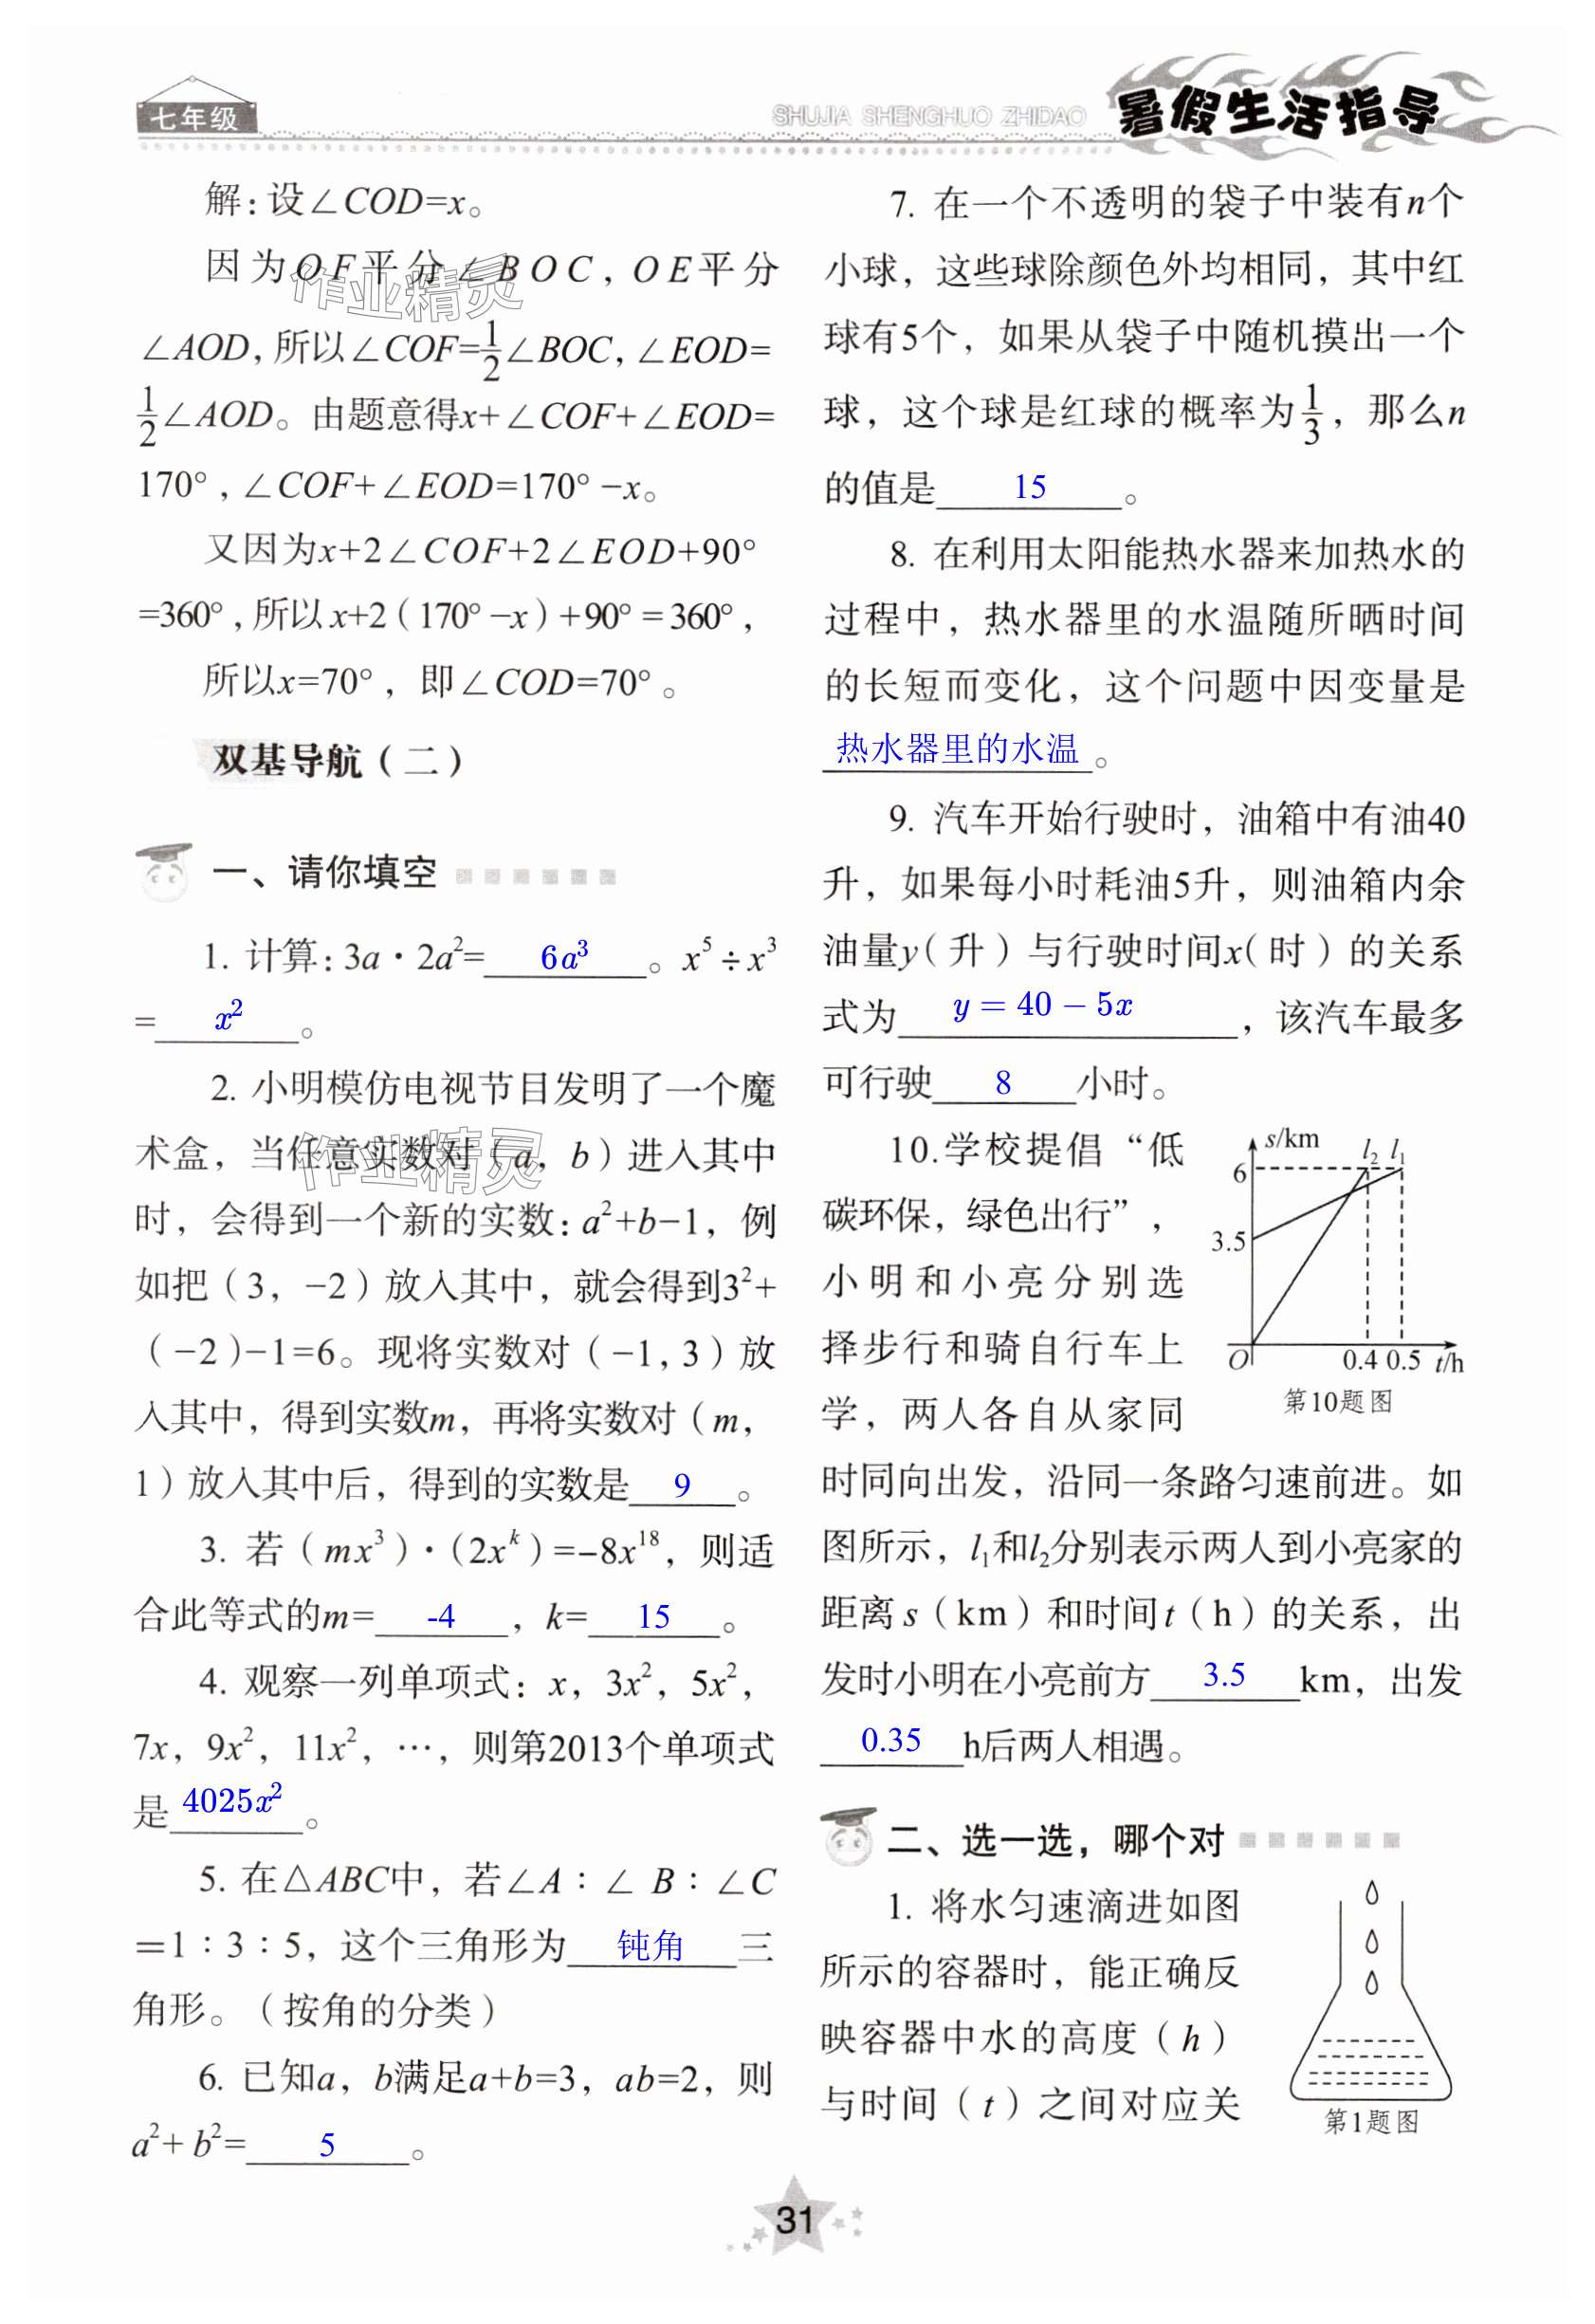 七年级
SHUJIA SHENGHUO ZHIDAO 暑假生活指导
解：设∠COD=x。
因为OF平分∠BOC，OE平分
∠AOD，所以∠COF=1/2∠BOC，∠EOD=
1/2∠AOD。由题意得x+∠COF+∠EOD=
170°，∠COF+∠EOD=170°-x。
又因为x+2∠COF+2∠EOD+90°
=360°，所以x+2（170°-x）+90°=360°，
所以x=70°，即∠COD=70°。
作业精灵
双基导航（二）
一、请你填空
1. 计算：3a·2a²=6a³。x⁵÷x³
=x²。
2. 小明模仿电视节目发明了一个魔
术盒，当任意实数对（a，b）进入其中
时，会得到一个新的实数：a²+b-1，例
如把（3，-2）放入其中，就会得到3²+
（-2）-1=6。现将实数对（-1，3）放
入其中，得到实数m，再将实数对（m，
1）放入其中后，得到的实数是 9 。
作业精灵
3. 若（mx³）·（2xᵏ）=-8x¹⁸，则适
合此等式的m= -4 ，k= 15 。
4. 观察一列单项式：x，3x²，5x²，
7x，9x²，11x²，…，则第2013个单项式
是 4025x² 。
5. 在△ABC中，若∠A：∠B：∠C
=1：3：5，这个三角形为 钝角 三
角形。（按角的分类）
6. 已知a，b满足a+b=3，ab=2，则
a²+b²= 5 。
7. 在一个不透明的袋子中装有n个
小球，这些球除颜色外均相同，其中红
球有5个，如果从袋子中随机摸出一个
球，这个球是红球的概率为1/3，那么n
的值是 15 。
8. 在利用太阳能热水器来加热水的
过程中，热水器里的水温随所晒时间
的长短而变化，这个问题中因变量是
热水器里的水温 。
9. 汽车开始行驶时，油箱中有油40
升，如果每小时耗油5升，则油箱内余
油量y（升）与行驶时间x（时）的关系
式为 y=40-5x ，该汽车最多
可行驶 8 小时。
10.学校提倡“低
碳环保，绿色出行”，
小明和小亮分别选
择步行和骑自行车上
学，两人各自从家同
时同向出发，沿同一条路匀速前进。如
图所示，l₁和l₂分别表示两人到小亮家的
距离s（km）和时间t（h）的关系，出
发时小明在小亮前方 3.5 km，出发
0.35 h后两人相遇。
s/km l₂ l₁
6
3.5
O 0.4 0.5 t/h
第10题图
二、选一选，哪个对
1. 将水匀速滴进如图
所示的容器时，能正确反
映容器中水的高度（h）
与时间（t）之间对应关
第1题图
31